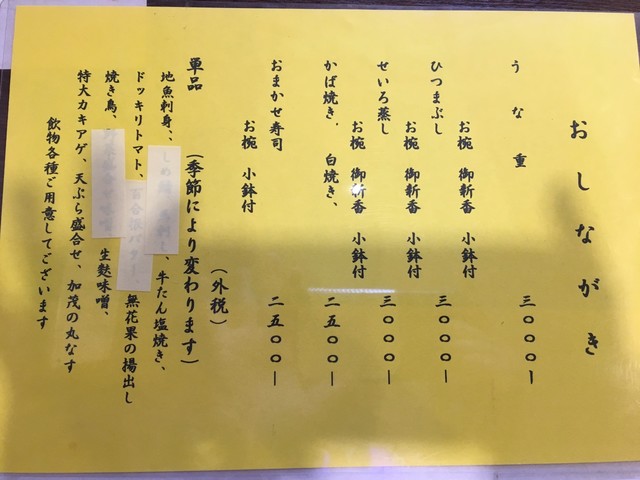 おしながき
うな重 三〇〇〇ー
お椀 御新香 小鉢付
ひつまぶし 三〇〇〇ー
お椀 御新香 小鉢付
せいろ蒸し 三〇〇〇ー
お椀 御新香 小鉢付
かば焼き. 白焼き、 二五〇〇ー
おまかせ寿司 二五〇〇ー
お椀 小鉢付
(外税)
単品 (季節により変わります)
地魚刺身、、 、牛たん塩焼き、
ドッキリトマト、 無花果の揚出し
焼き鳥、 生麩味噌、
特大カキアゲ、天ぷら盛合せ、加茂の丸なす
飲物各種ご用意してございます